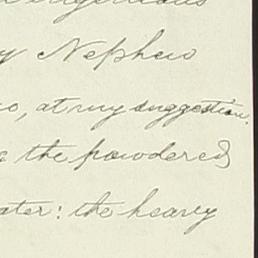 Nephew
, at my suggestion.
the powdered
ater: the heavy